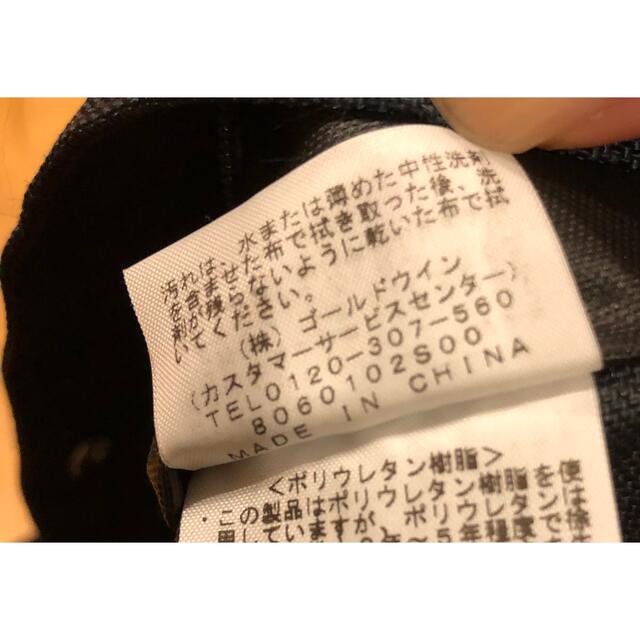 汚れは、水または薄めた中性洗剤
を含ませた布で拭き取った後、洗
剤が残らないように乾いた布で拭
いてください。
(株) ゴールドウイン
(カスタマーサービスセンター)
TEL0120-307-560
8060102S00
MADE IN CHINA
<ポリウレタン樹脂>
・この製品はポリウレタン樹脂を使
用しています
が、ポリウレタンは
5年程度で